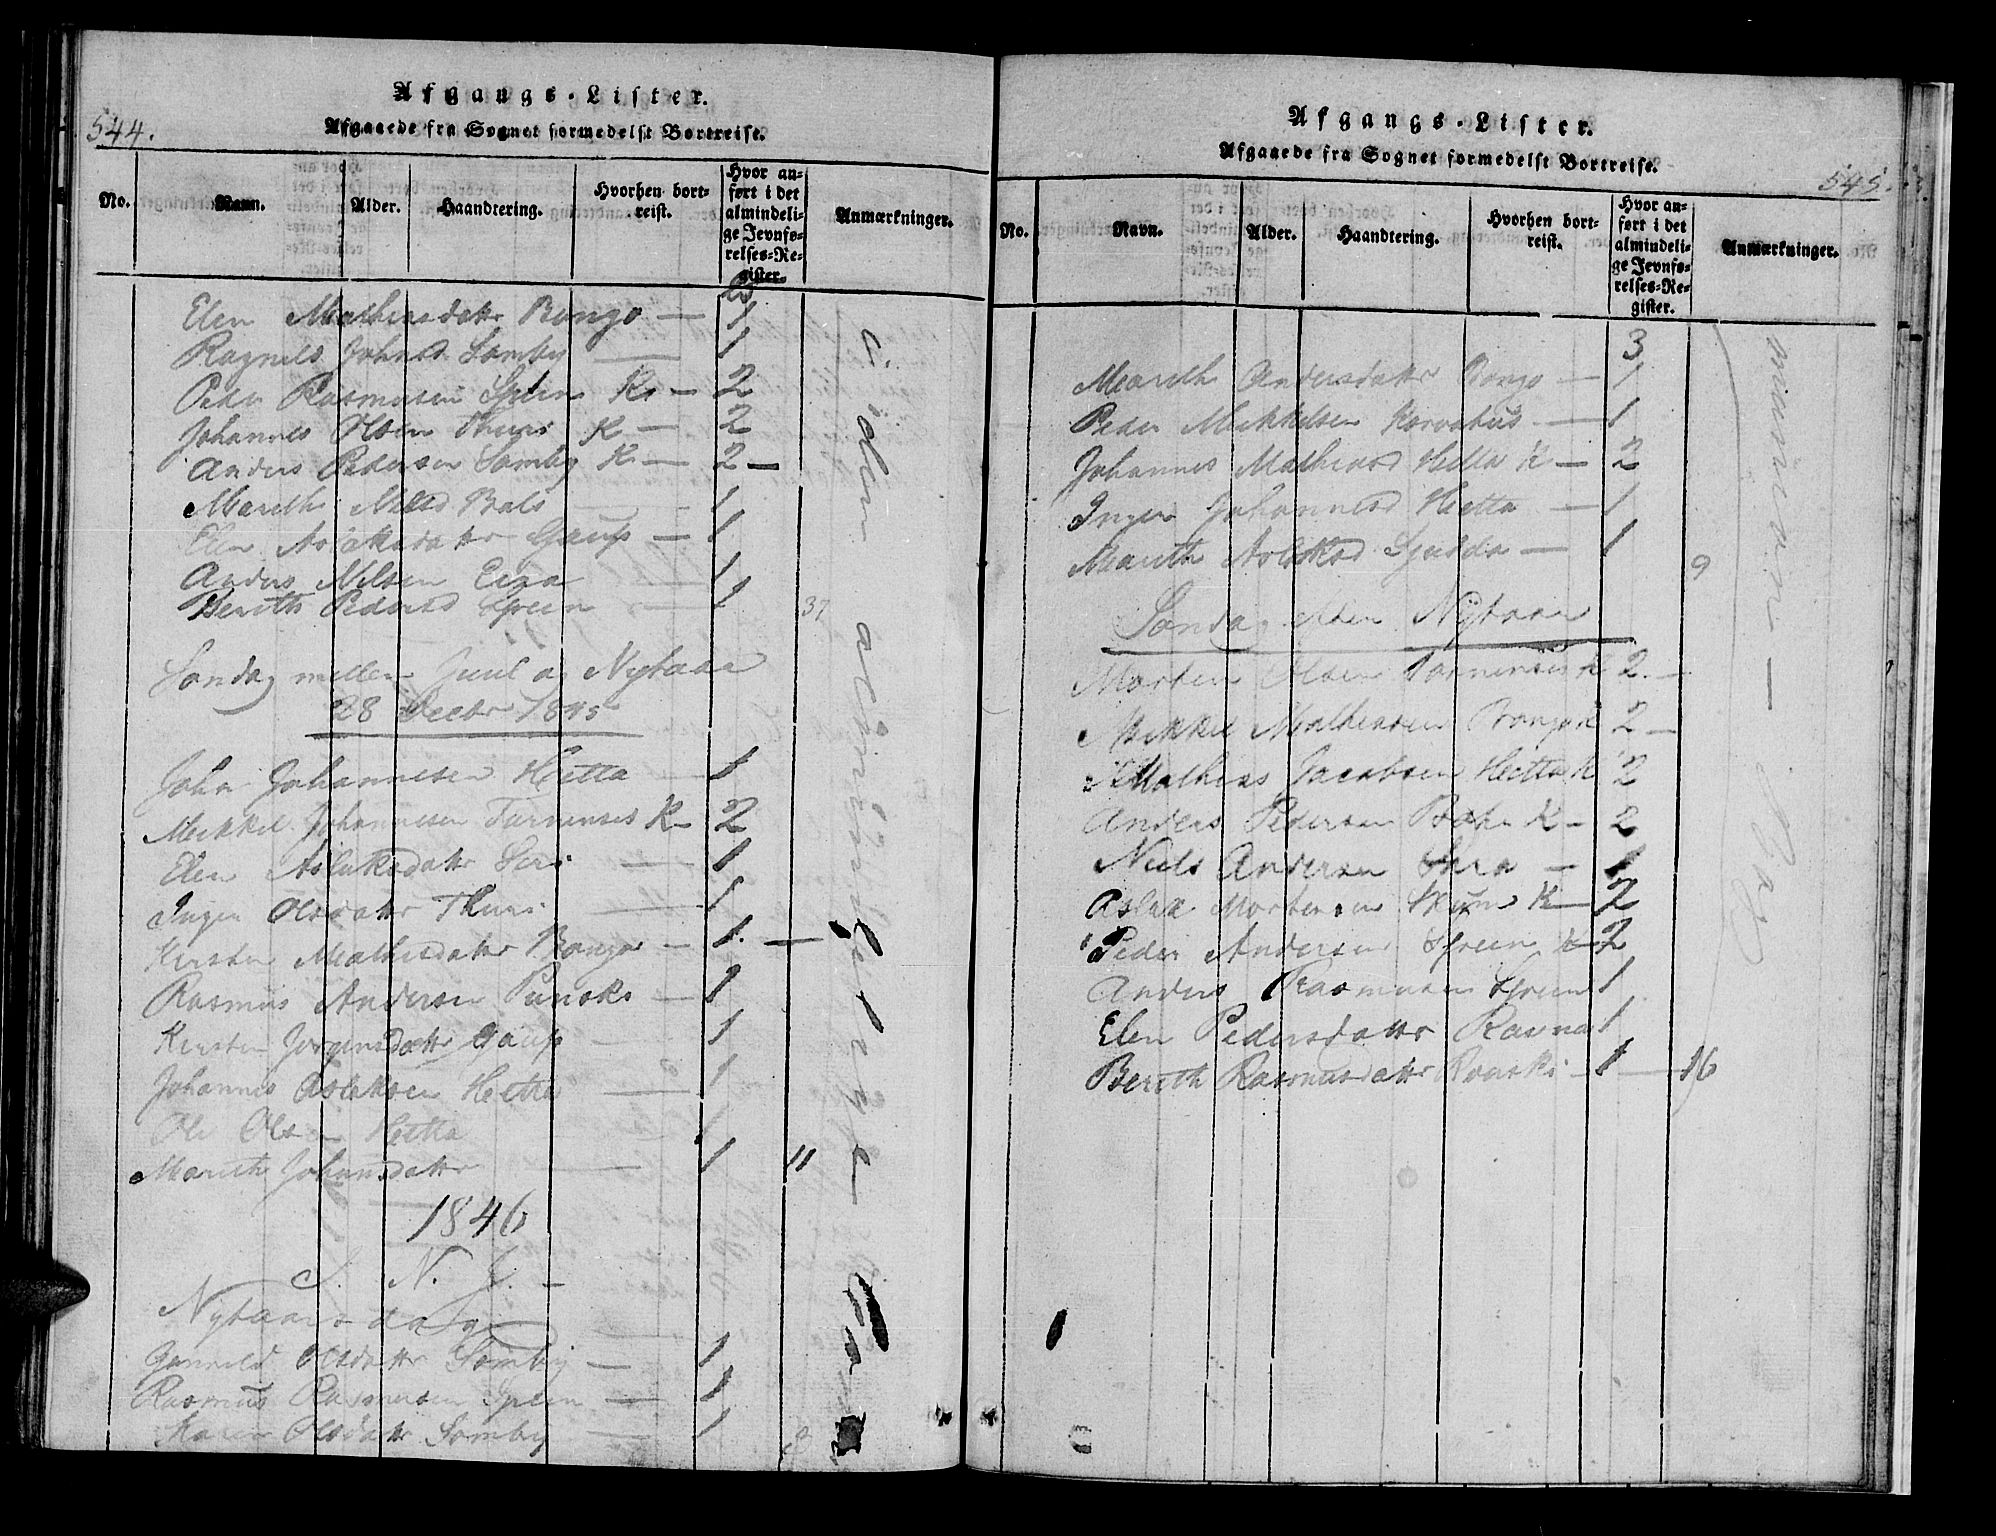 544.
Afgangs-Lister.
Afgaaede fra Sognet formedelst Bortreise.
No.
Navn.
Alder.
Haandtering.
Hvorhen bortreist.
Hvor anført i det almindelige Jevnførelses-Register.
Anmærkninger.
Elen Mathisdattr Bongo — 1
Ragnild Johnsd. Somby — 1
Peder Rasmusen Spein K. — 2
Johannes Olsen Thuri K — 2
Anders Pedersen Somby K. — 2 —
Mareth Nilsd Bals 1
Elen Aslaksdattr Gaup — 1
Anders Nilsen Eira 1
Berith Pedersd Spein 1 37
Søndag mellem Juul og Nytaar
28 Decbr 1845
John Johannesen Hætta 1
Mikkel Johannesen Tornensis K — 2
Elen Aslaksdattr Sari 1
Inger Olsdattr Thuri 1
Kirsten Mathisdattr Bongo — 1. —
Rasmus Andersen Punski — 1
Kirsten Jørgensdattr Gaup 1
Johannes Aslaksen Hætta 1
Ole Olsen Hætta 1
Marith Johansdattr 1 11
1846
J. N. J. —
Nytaarsdag
Gunnild Olsdattr Somby — 1
Rasmus Rasmusen Spein — 1
Karen Olsdattr Somby 1 3
Afgangs-Lister.
Afgaaede fra Sognet formedelst Bortreise.
545.
No.
Navn.
Alder.
Haandtering.
Hvorhen bortreist.
Hvor anført i det almindelige Jevnførelses-Register.
Anmærkninger.
3
Mareth Andersdattr Bongo — 1
Peder Mikkelsen Korvatus — 1
Johannes Mathisd Hætta K — 2
Inger Johannesd Hætta — 1
Marith Aslaksd — 1 9
Søndag efter Nytaar
Morten Olsen Tornensis K 2 —
Mikkel Mathisen Bongo K 2 —
Mathis Jacobsen Hætta K 2
Anders Pedersen Bæhr K — 2
Niels Andersen Sara — 1
Aslak Mortensen Skum K — 2
Peder Andersen Spein K — 2
Anders Rasmusen Spein 1
Elen Pedersdattr Ravna 1
Berith Rasmusdattr — 1 — 16